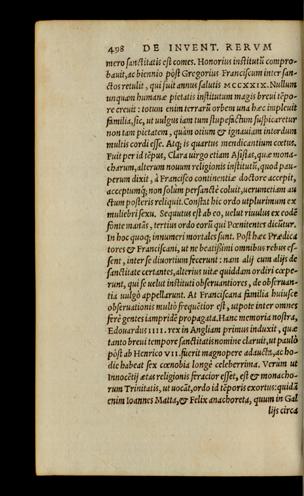 498 DE INVENT. RERVM
mero sanctitatis est comes. Honorius institutũ compro-
bauit, ac biennio pòst Gregorius Franciscum inter san-
ctos retulit, qui fuit annus salutis MCCXXIX. Nullum
unquam humanæ pietatis institutum magis breui tẽpo-
re creuit: totum enim terrarũ orbem una hæc impleuit
familia, sic, ut uulgus iam tum stupefactum suspicaretur
non tam pietatem, quàm otium & ignauiam interdum
multis cordi esse. Atq; is quartus mendicantium cœtus.
Fuit per id tẽpus, Clara uirgo etiam Asisias, quæ mona-
charum, alterum nouum religionis institutũ, quod pau-
perum dixit, à Francisco continentiæ doctore accepit,
acceptumq́; non solùm persanctè coluit, uerumetiam au
ctum posteris reliquit. Constat hic ordo utplurimum ex
muliebri sexu. Sequutus est ab eo, uelut riuulus ex eodẽ
fonte manãs, tertius ordo eorũ qui Pœnitentes dicũtur.
In hoc quoq; innumeri mortales sunt. Posthæc Prædica
tores & Franciscani, ut ne beatissimi omnibus rebus es-
sent, inter se diuortium fecerunt: nam alij cum alijs de
sanctitate certantes, alterius uitæ quiddam ordiri cœpe-
runt, qui se uelut instituti obseruantiores, de obseruan-
tia uulgò appellarunt. At Franciscana familia huiusce
obseruationis multò frequẽtior est, utpote inter omnes
ferè gentes iampridẽ propagata. Hanc memoria nostra,
Edouardus IIII. rex in Angliam primus induxit, quæ
tanto breui tempore sanctitatis nomine claruit, ut paulò
pòst ab Henrico VII. fuerit magnopere adaucta, ac ho-
die habeat sex cœnobia longè celeberrima. Verùm ut
Innocẽtij ætas religionis feracior esset, est & monacho-
rum Trinitatis, ut uocãt, ordo id tẽporis exortus: quidã
enim Ioannes Matta, & Felix anachoreta, quum in Gal
lijs circa